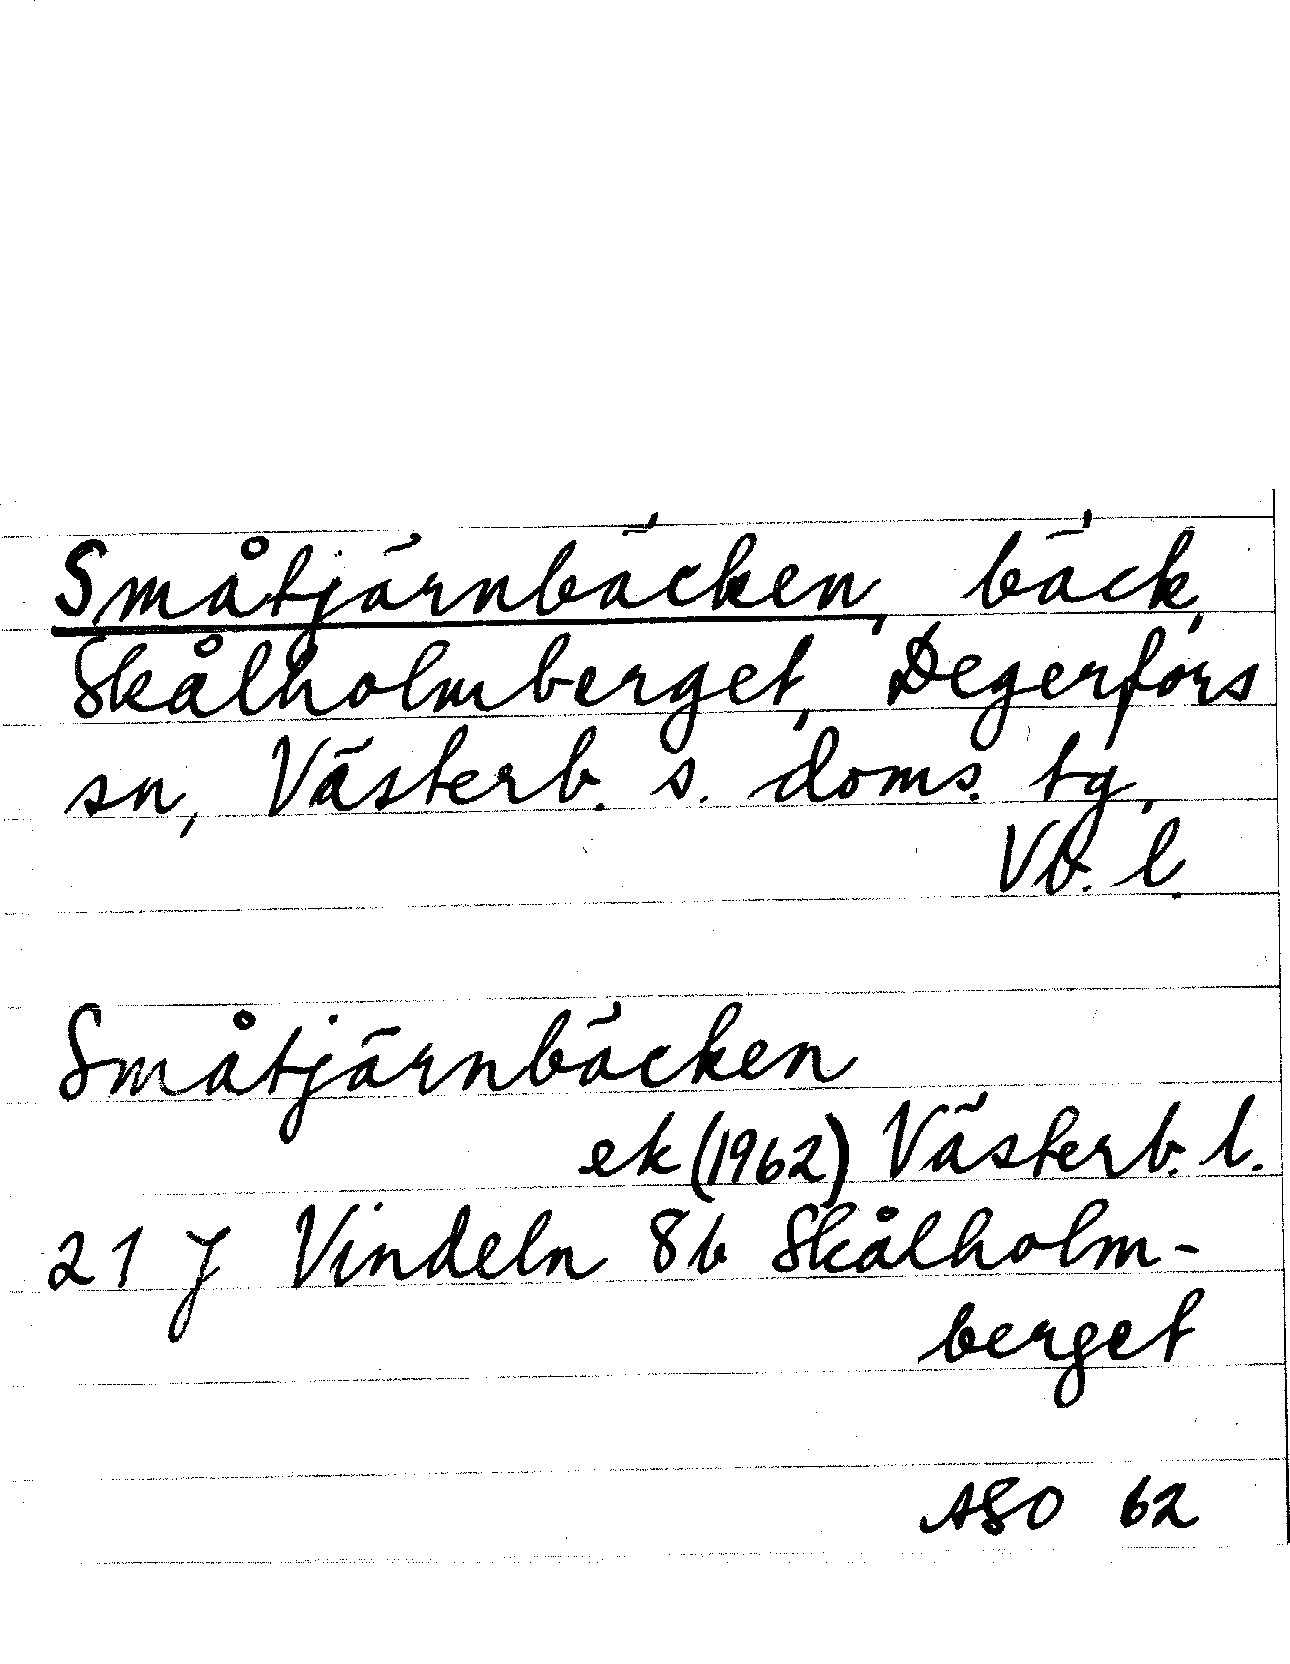 Småtjärnbäcken, bäck,
Skålholmberget, Degerfors
sn, Västerb. s. doms. tg,
Vb. l.
Småtjärnbäcken
ek (1962) Västerb. l.
21 J Vindeln 8b Skålholm-
berget
ASO 62